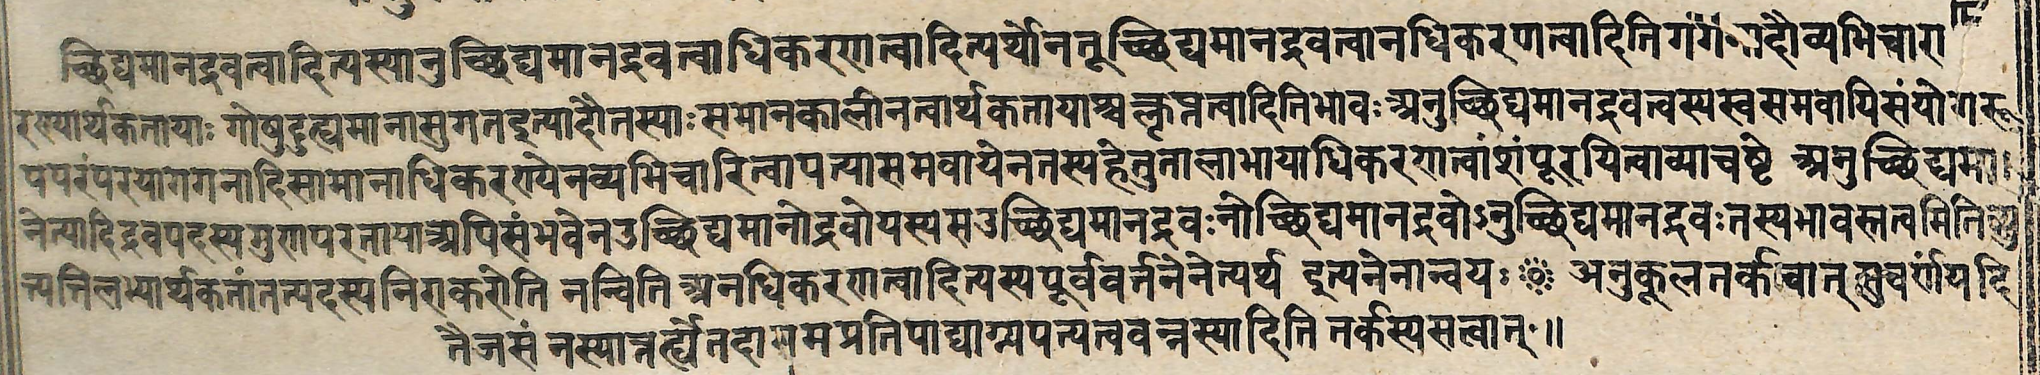 च्छिद्यमानद्रवत्वादित्यस्यानुच्छिद्यमानद्रवत्वाधिकरणत्वादित्यर्थोनतूच्छिद्यमानद्रवत्वानधिकरणत्वादितिगगनादौव्यभिचारा
रस्यार्थकतायाः गोषुदुह्यमानासुगतइत्यादौतस्याः समानकालीनत्वार्थकतायाश्चक्लृप्तत्वादितिभावः अनुच्छिद्यमानद्रवत्वस्यस्वसमवायिसंयोगरू
पपरंपरयागगनादिसामानाधिकरण्येनव्यभिचारित्वापत्यासमवायेनतस्यहेतुतालाभायाधिकरणत्वांशंपूरयित्वाव्याचष्टे अनुच्छिद्यमा
नेत्यादिद्रवपदस्यगुणपरतायाअपिसंभवेनउच्छिद्यमानोद्रवोयस्यसउच्छिद्यमानद्रवःनोच्छिद्यमानद्रवोऽनुच्छिद्यमानद्रवःतस्यभावस्तत्वमितिव्यु
त्पत्तिलभ्यार्थकतांतत्पदस्यनिराकरोति नन्विति अनधिकरणत्वादित्यस्यपूर्ववर्तनेनेत्यर्थ इत्यनेनान्वयः अनुकूलतर्कवात् सुवर्णंयदि
तैजसं नस्यात्तर्ह्येतदागमप्रतिपाद्याग्न्यपत्यत्ववन्नस्यादिति तर्कस्यसत्वात् ॥